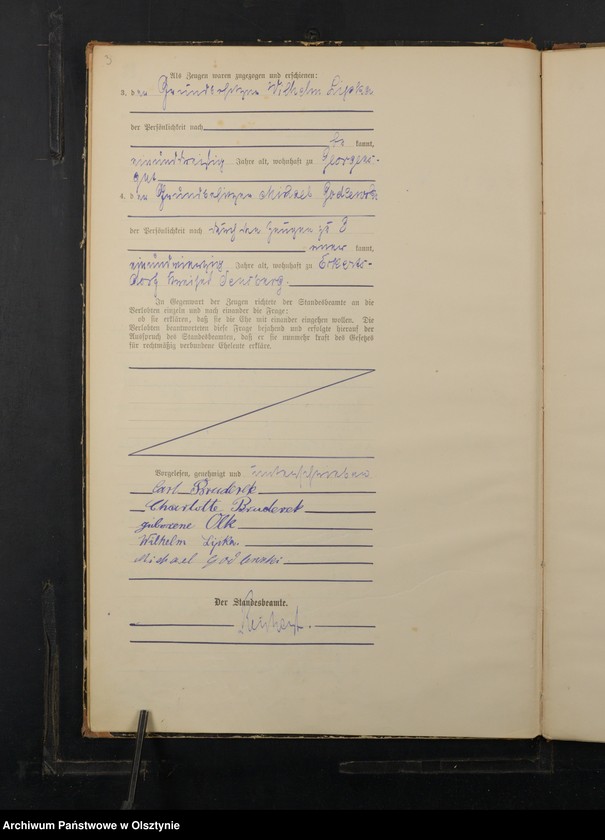 3
Als Zeugen waren zugezogen und erschienen:
3. der Grundbesitzer Wilhelm Lipka
der Persönlichkeit nach
be kannt,
einunddreißig Jahre alt, wohnhaft zu Georgens-
gut
4. der Grundbesitzer Michael
der Persönlichkeit nach durch den Zeugen zu 3
aner kannt,
einundvierzig Jahre alt, wohnhaft zu Erkerts-
dorf Kreises Sensburg.
In Gegenwart der Zeugen richtete der Standesbeamte an die
Verlobten einzeln und nach einander die Frage:
ob sie erklären, daß sie die Ehe mit einander eingehen wollen. Die
Verlobten beantworteten diese Frage bejahend und erfolgte hierauf der
Ausspruch des Standesbeamten, daß er sie nunmehr kraft des Gesetzes
für rechtmäßig verbundene Eheleute erkläre.
Vorgelesen, genehmigt und unterschrieben
Carl Bruderek
Charlotte Bruderek
geborene Olk
Wilhelm Lipka.
Michael
Der Standesbeamte.
Archiwum Państwowe w Olsztynie